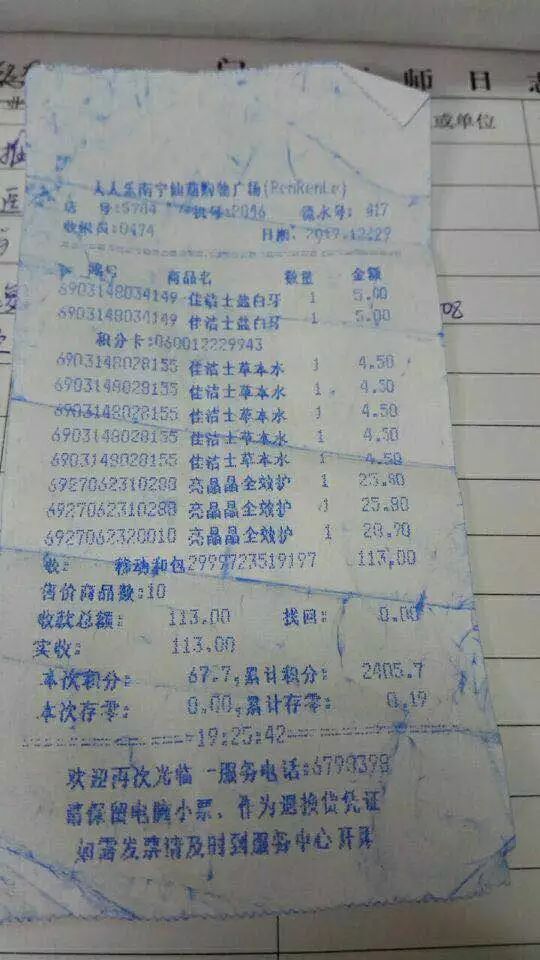 师日志
或单位
人人乐南宁仙葫购物广场(RenRenLe)
店 号:5704 机号:2006 流水号: 417
收银员:0474 日期: 2019.12.29
商品名 数量 金额
6903148034149 佳洁士盐白牙 1 5.00
6903148034149 佳洁士盐白牙 1 5.00
积分卡:060012229943
6903148028155 佳洁士草本水 1 4.50
6903148028155 佳洁士草本水 1 4.50
6903148028155 佳洁士草本水 1 4.50
6903148028155 佳洁士草本水 1 4.50
6903148028155 佳洁士草本水 1 4.50
6927062310288 亮晶晶全效护 1 25.80
6927062310288 亮晶晶全效护 1 25.80
6927062320010 亮晶晶全效护 1 28.90
收: 移动和包2999723519197 113.00
售价商品数:10
收款总额: 113.00 找回: 0.00
实收: 113.00
本次积分: 67.7,累计积分: 2405.7
本次存零: 0.00,累计存零: 0.19
19:25:42
欢迎再次光临 一服务电话:6798398
请保留电脑小票、作为退换货凭证
如需发票请及时到服务中心开具